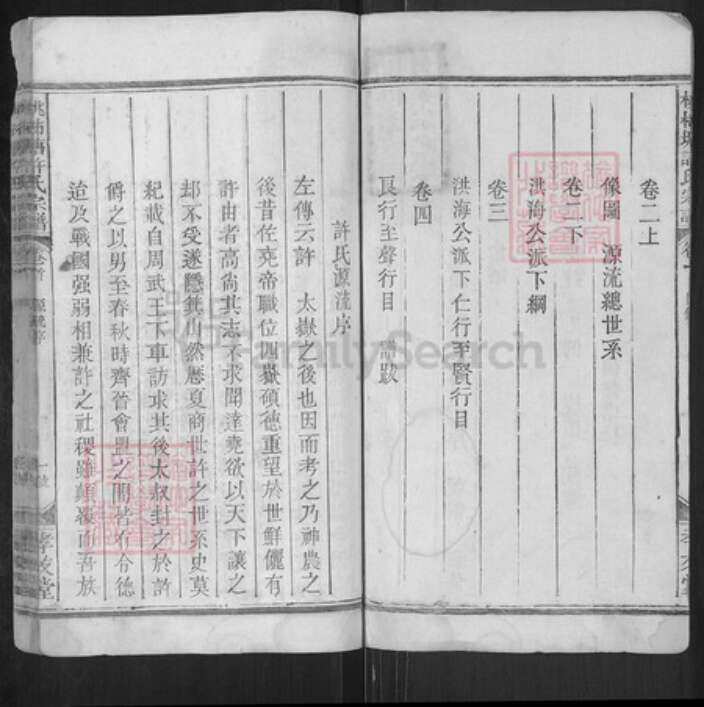 卷二上
像圖 源流總世系
卷二下
洪海公派下綱
卷三
洪海公派下仁行至賢行目
卷四
良行至聲行目 譜跋
許氏源流序
左傳云許 太嶽之後也因而考之乃神農之
後昔佐堯帝職位四嶽碩德重望於世鮮儷有
許由者高尚其志不求聞達堯欲以天下讓之
却不受遂隱箕山然歷夏商世許之世系史莫
紀載自周武王下車訪求其後太叔封之於許
爵之以男至春秋時齊晉會盟之間皆有合德
迨及戰國强弱相兼許之社稷雖顛覆而吾族
許氏宗譜 卷首 源流序 孝友堂
FamilySearch